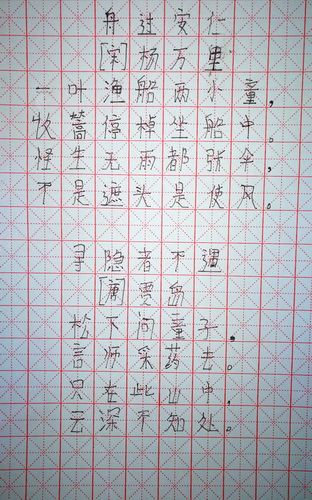 舟过安仁
[宋]杨万里
一叶渔船两小童,
收篙停棹坐船中。
怪生无雨都张伞,
不是遮头是使风。
寻隐者不遇
[唐]贾岛
松下问童子,
言师采药去。
只在此山中,
云深不知处。